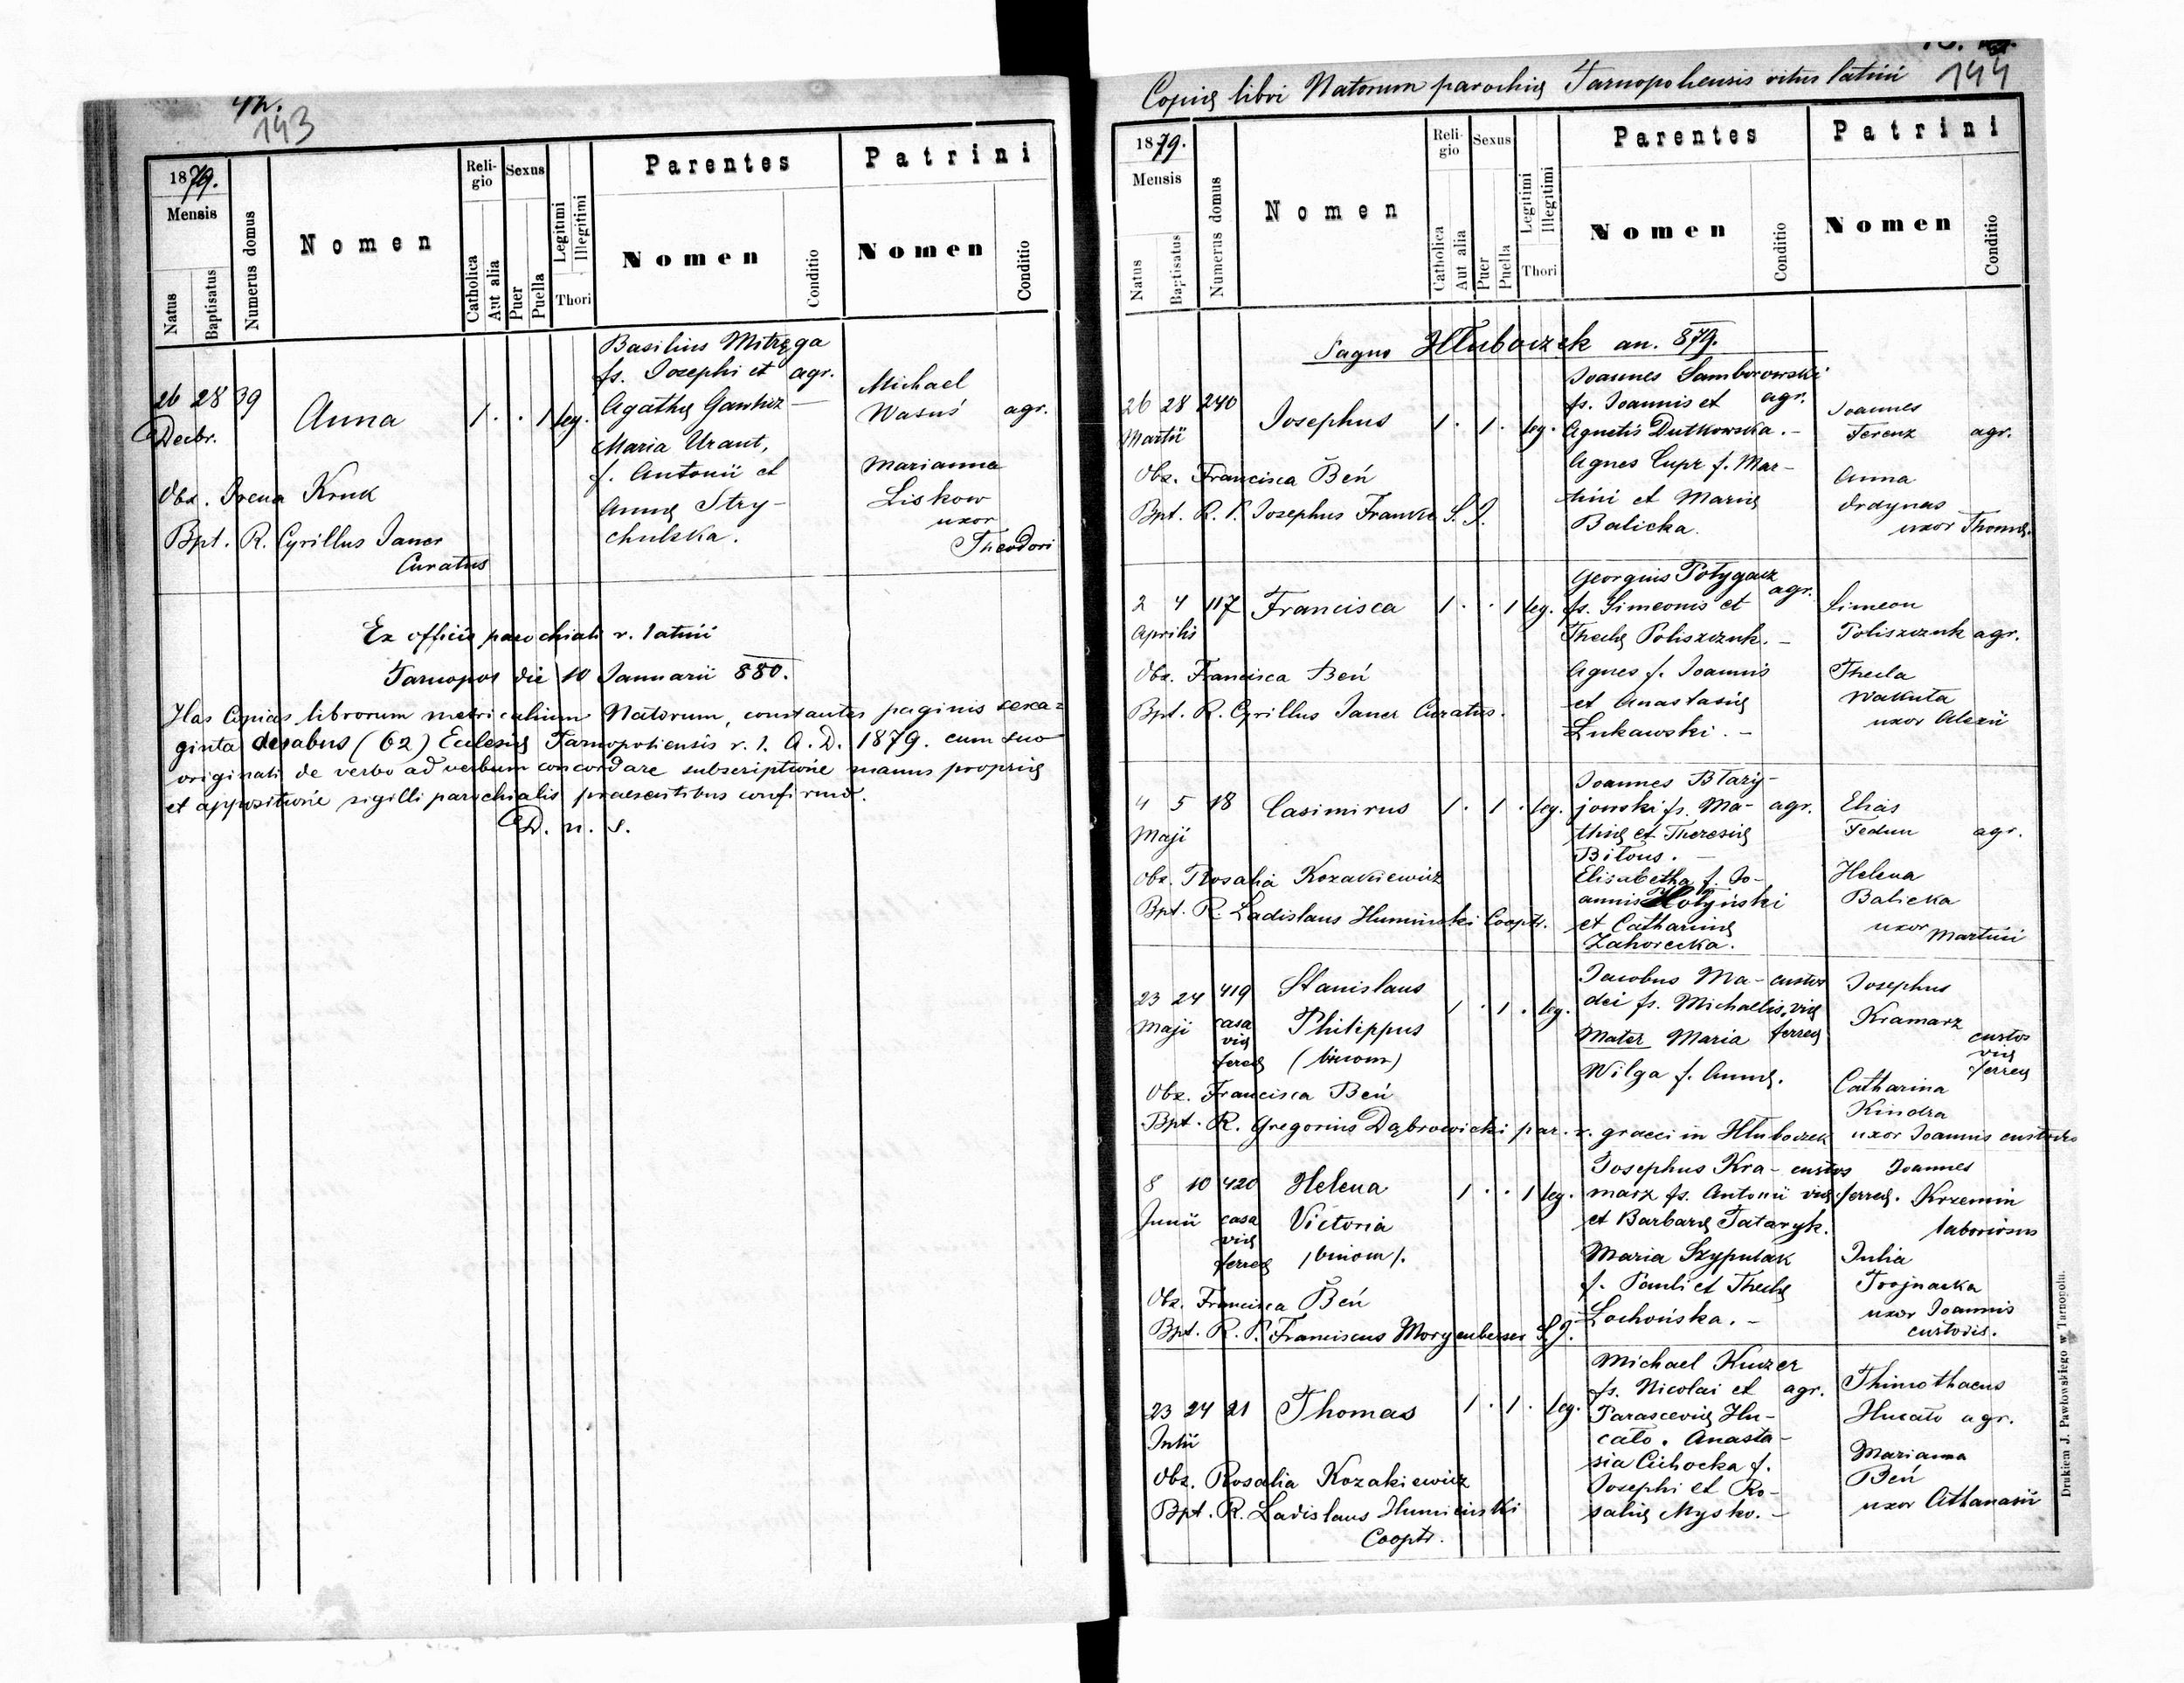 42.
143
1879.
Mensis
Natus
Baptisatus
Numerus domus
Nomen
Religio
Catholica
Aut alia
Sexus
Puer
Puella
Legitimi
Illegitimi
Thori
Parentes
Nomen
Conditio
Patrini
Nomen
Conditio
26 28 39 Anna 1 . . 1 leg.
Decbr.
Basilius Mitręga
fs. Josephi et agr.
Agathę Gawlicz —
Maria Urant,
f. Antonii et
Annę Stry-
chulska.
Michael
Wasuś agr.
Marianna
Liskow
uxor
Theodori
Obx. Irena Kruk
Bpt. R. Cyrillus Janer
Curatus
Ex officio parochiali r. latini
Tarnopol die 10 Januarii 880.
Has Copias librorum metricalium Natorum, constantes paginis sexa-
ginta duabus (62) Ecclesię Tarnopoliensis r. l. A. D. 1879. cum suo
originali de verbo ad verbum concordare subscriptione manus proprię
et appositione sigilli parochialis praesentibus confirmo.
D. u. s.
144
Copię libri Natorum parochię Tarnopoliensis ritus latini
1879.
Mensis
Natus
Baptisatus
Numerus domus
Nomen
Religio
Catholica
Aut alia
Sexus
Puer
Puella
Legitimi
Illegitimi
Thori
Parentes
Nomen
Conditio
Patrini
Nomen
Conditio
Pagus Hłuboczek an. 879.
26 28 240 Josephus 1 . 1 . leg.
Martii
Joannes Samborowski
fs. Joannis et agr.
Agnetis Dutkowska. -
Agnes Cupr f. Mar-
tini et Marię
Balicka.
Joannes
Ferenz agr.
Anna
Ordynas
uxor Thomę.
Obx. Francisca Beń
Bpt. R. P. Josephus Franke S. J.
2 4 117 Francisca 1 . . 1 leg.
Aprilis
Georgius Połygacz
fs. Simeonis et agr.
Theclę Poliszczuk. -
Agnes f. Joannis
et Anastasię
Łukawski. -
Simeon
Poliszczuk agr.
Thecla
Wakuta
uxor Alexii
Obx. Francisca Beń
Bpt. R. Cyrillus Janer Curatus.
4 5 18 Casimirus 1 . 1 . leg.
Maji
Joannes Błaży-
jowski fs. Ma- agr.
thię et Theresię
Biłous. -
Elisabetha f. Jo-
annis Hołyński
et Catharinę
Zahorecka.
Elias
Fedun agr.
Helena
Balicka
uxor Martini
Obx. Rosalia Kozakiewicz
Bpt. R. Ladislaus Humiński Cooptr.
23 24 419 Stanislaus 1 . 1 . leg.
Maji casa Philippus
vię
ferreę (binom)
Jacobus Ma- custos
dei fs. Michaelis, vię
Mater Maria ferreę
Wilga f. Annę.
Josephus
Kramarz
custos
vię
ferreę
Catharina
Kindra
uxor Joannis custodis
Obx. Francisca Beń
Bpt. R. Gregorius Dąbrowicki par. r. graeci in Hłuboczek
8 10 420 Helena 1 . . 1 leg.
Junii casa Victoria
vię
ferreę /binom/.
Josephus Kra- custos
marz fs. Antonii vię ferreę.
et Barbarę Tataryk.
Maria Szypulak
f. Pauli et Theclę
Łochońska. -
Joannes
Krzemin
laboriosus
Julia
Trojnacka
uxor Joannis
custodis.
Obx. Francisca Beń
Bpt. R. P. Franciscus Morgenbesser S. J.
23 24 21 Thomas 1 . 1 . leg.
Julii
Michael Kuczer
fs. Nicolai et agr.
Parascevię Hu-
cało. Anasta-
sia Cichocka f.
Josephi et Ro-
salię Mysko. -
Thimothaeus
Hucało agr.
Marianna
Beń
uxor Athanasii
Obx. Rosalia Kozakiewicz
Bpt. R. Ladislaus Humiciński
Cooptr.
Drukiem J. Pawłowskiego w Tarnopolu.